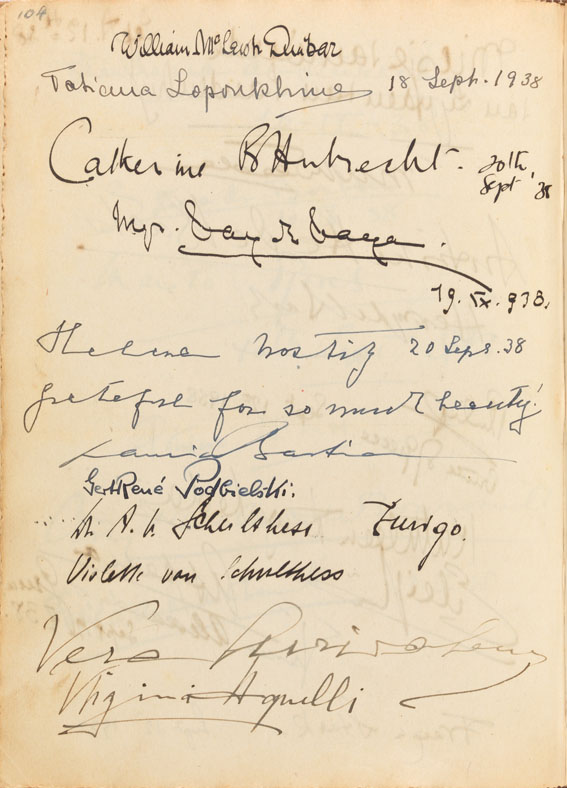 104
William McLeish Dunbar
Tatiana Lopoukhine 18 Sept. 1938
Catherine B Hubrecht. 20th Sept '38
Mgr. Vay de Vaya.
19. IX. 938.
Helene Nostitz 20 Sept. 38
grateful for so much beauty!
GertRené Podbielski.
Dr. A. v. Schulthess Zurigo.
Violette von Schulthess
Vera
Virginia Agnelli